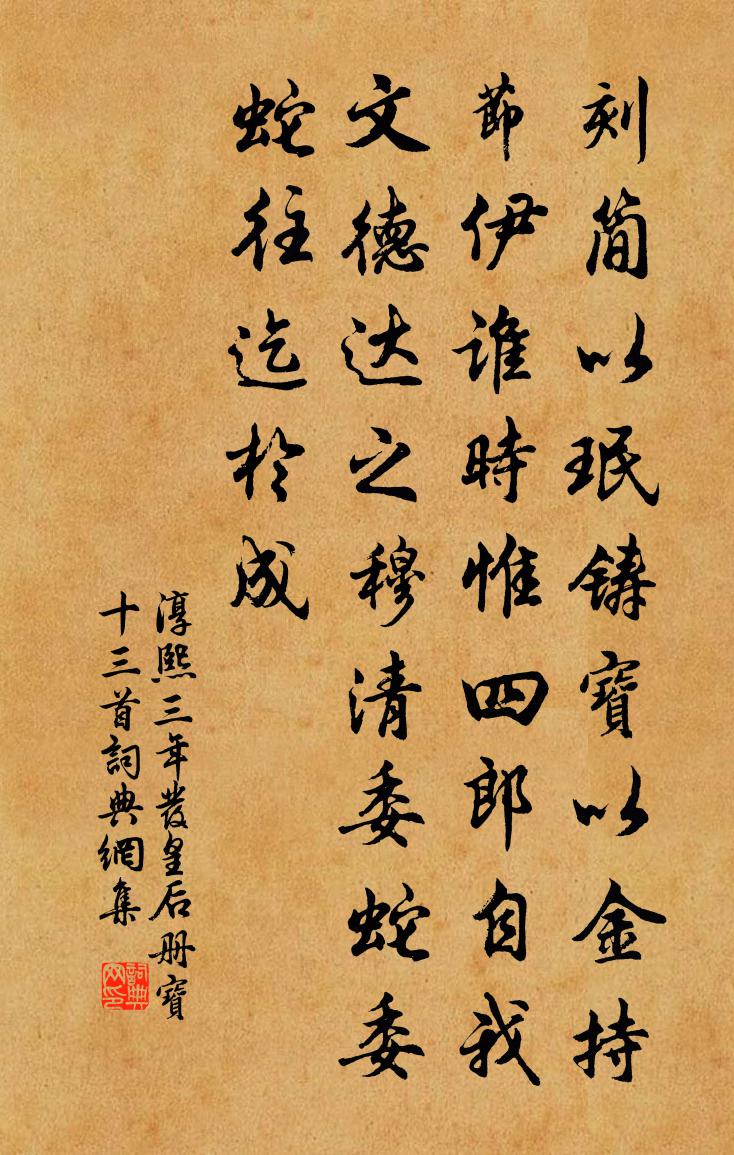 刻简以珉铸寶以金持
節伊谁時惟四郎自我
文德达之穆清委蛇委
蛇往迄於成
淳熙三年發皇后册寶
十三首詞典網集
詞典网印